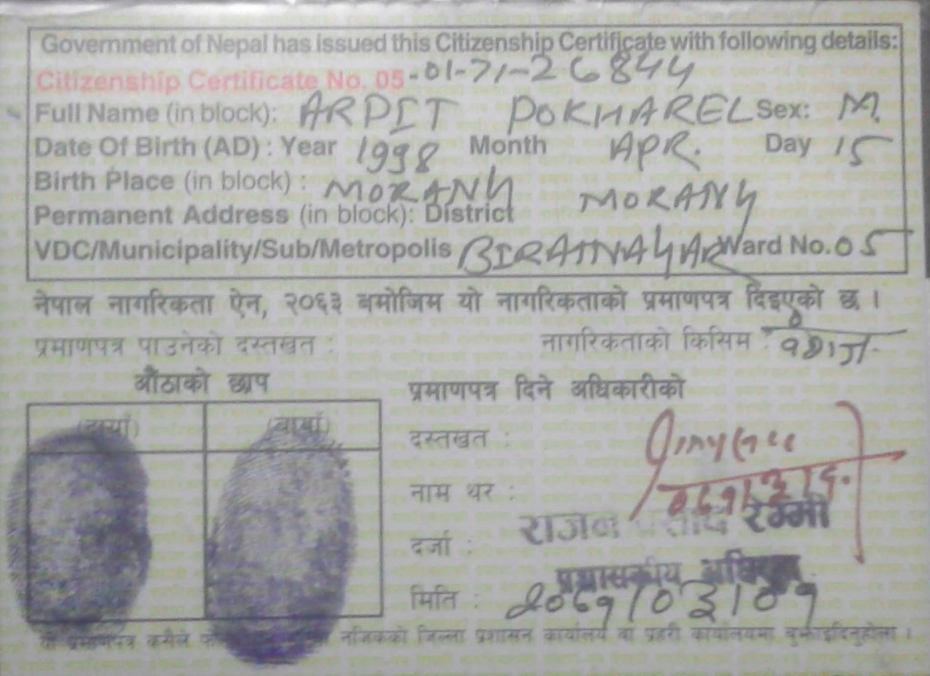 Government of Nepal has issued this Citizenship Certificate with following details:
Citizenship Certificate No. 05-01-71-26844
Full Name (in block): ARPIT POKHAREL Sex: M.
Date Of Birth (AD) : Year 1998 Month APR. Day 15
Birth Place (in block) : MORANG
Permanent Address (in block): District MORANG
VDC/Municipality/Sub/Metropolis BIRATNAGAR Ward No. 05
नेपाल नागरिकता ऐन, २०६३ बमोजिम यो नागरिकताको प्रमाणपत्र दिइएको छ ।
प्रमाणपत्र पाउनेको दस्तखत :
नागरिकताको किसिम : वंशज
औंठाको छाप
(दायाँ) (बायाँ)
प्रमाणपत्र दिने अधिकारीको
दस्तखत :
नाम थर : राजन प्रसाद रेग्मी
दर्जा : प्रशासकीय अधिकृत
मिति : 2069/03/09
यो प्रमाणपत्र कसैले नजिकको जिल्ला प्रशासन कार्यालय वा प्रहरी कार्यालयमा बुझाइदिनुहोला ।